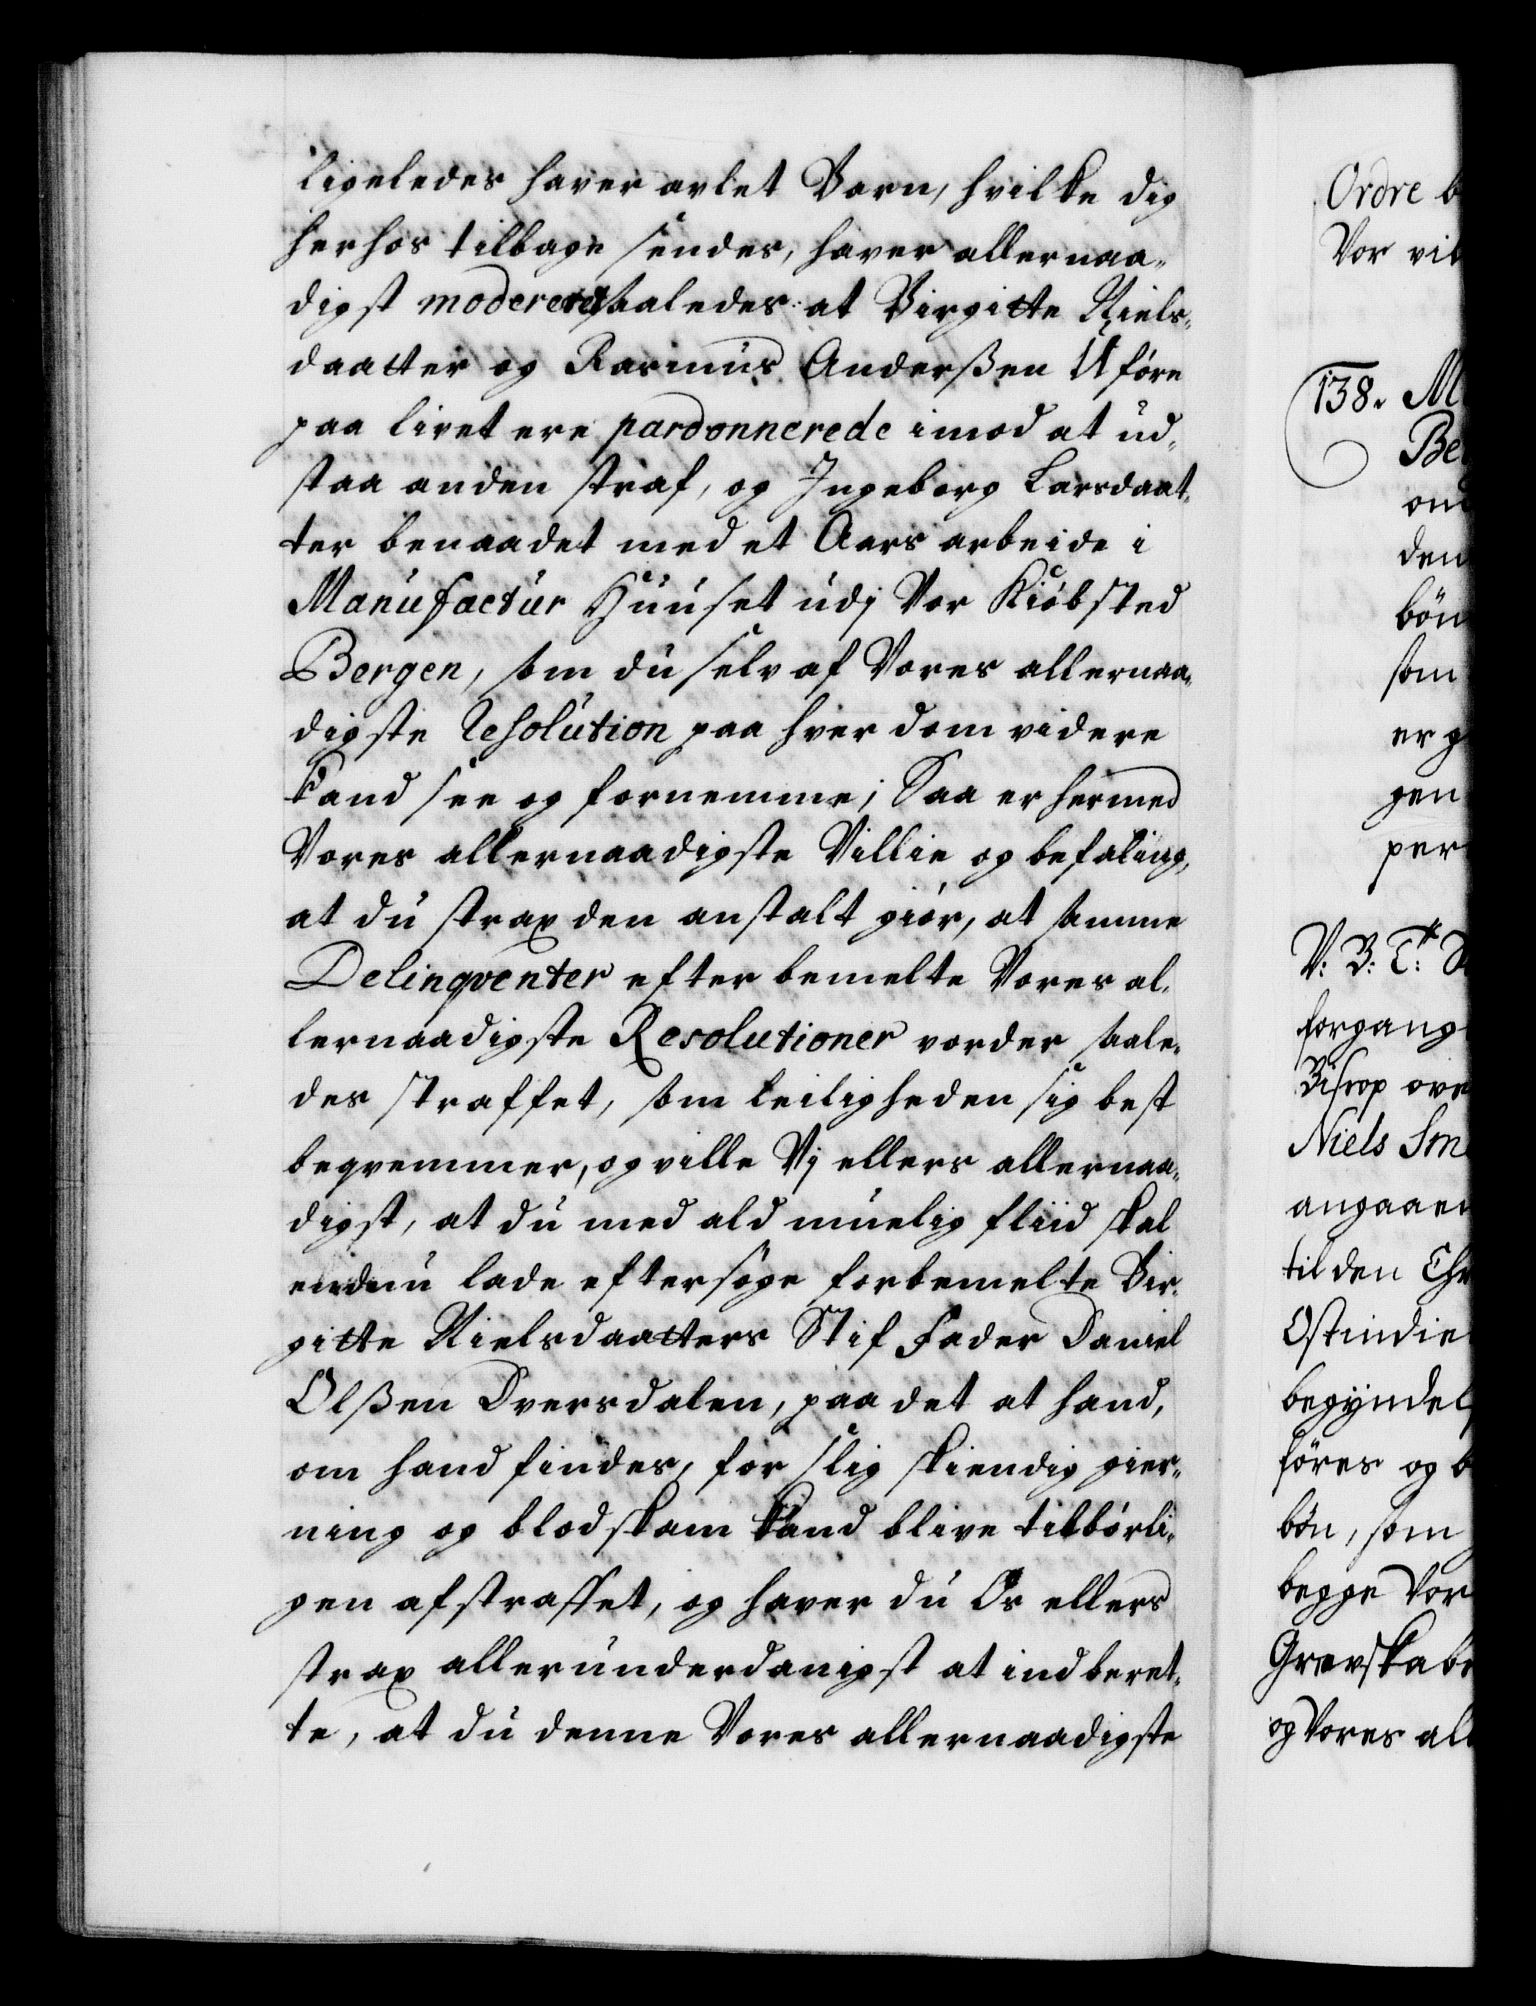 ligeledes haver avlet Barn, hvilke dig
herhos tilbage sendes, haver allernaa-
digst modereret saaledes: at Birgitte Niels-
daatter og Rasmus Anderßen Uføre
paa livet ere pardonnerede imod at ud-
staa anden straf, og Ingeborg Larsdaat-
ter benaadet med et Aars arbeide i
Manufactur Huuset udj Vor Kiøbsted
Bergen, som du selv af Vores allernaa-
digste Resolution paa hver dom videre
kand see og fornemme; Saa er hermed
Vores allernaadigste Villie og befaling,
at du strax den anstalt giør, at samme
Delinqventer efter bemelte Vores al-
lernaadigste Resolutioner vorder saale-
des straffet, som leiligheden sig best
beqvemmer, og ville Vj ellers allernaa-
digst, at du med ald muelig fliid skal
endnu lade eftersøge forbemelte Bir-
gitte Nielsdaatters Stif Fader Daniel
Olßen Dversdalen, paa det at hand,
om hand findes, for slig skiendig gier-
ning og blodskam kand blive tilbørli-
gen afstraffet, og haver du Os ellers
strax allerunderdanigst at indberet-
te, at du denne Vores allernaadigste
Ordre b
Vor vil
138. M
Be
om
den
bøn
som
er g
gen
per
V: B: T:
forgang
Biscop ove
Niels Sm
angaaen
til den Chr
Ostindie
begyndel
føres og b
bøn, som
begge Vor
Grevskabe
og Vores all